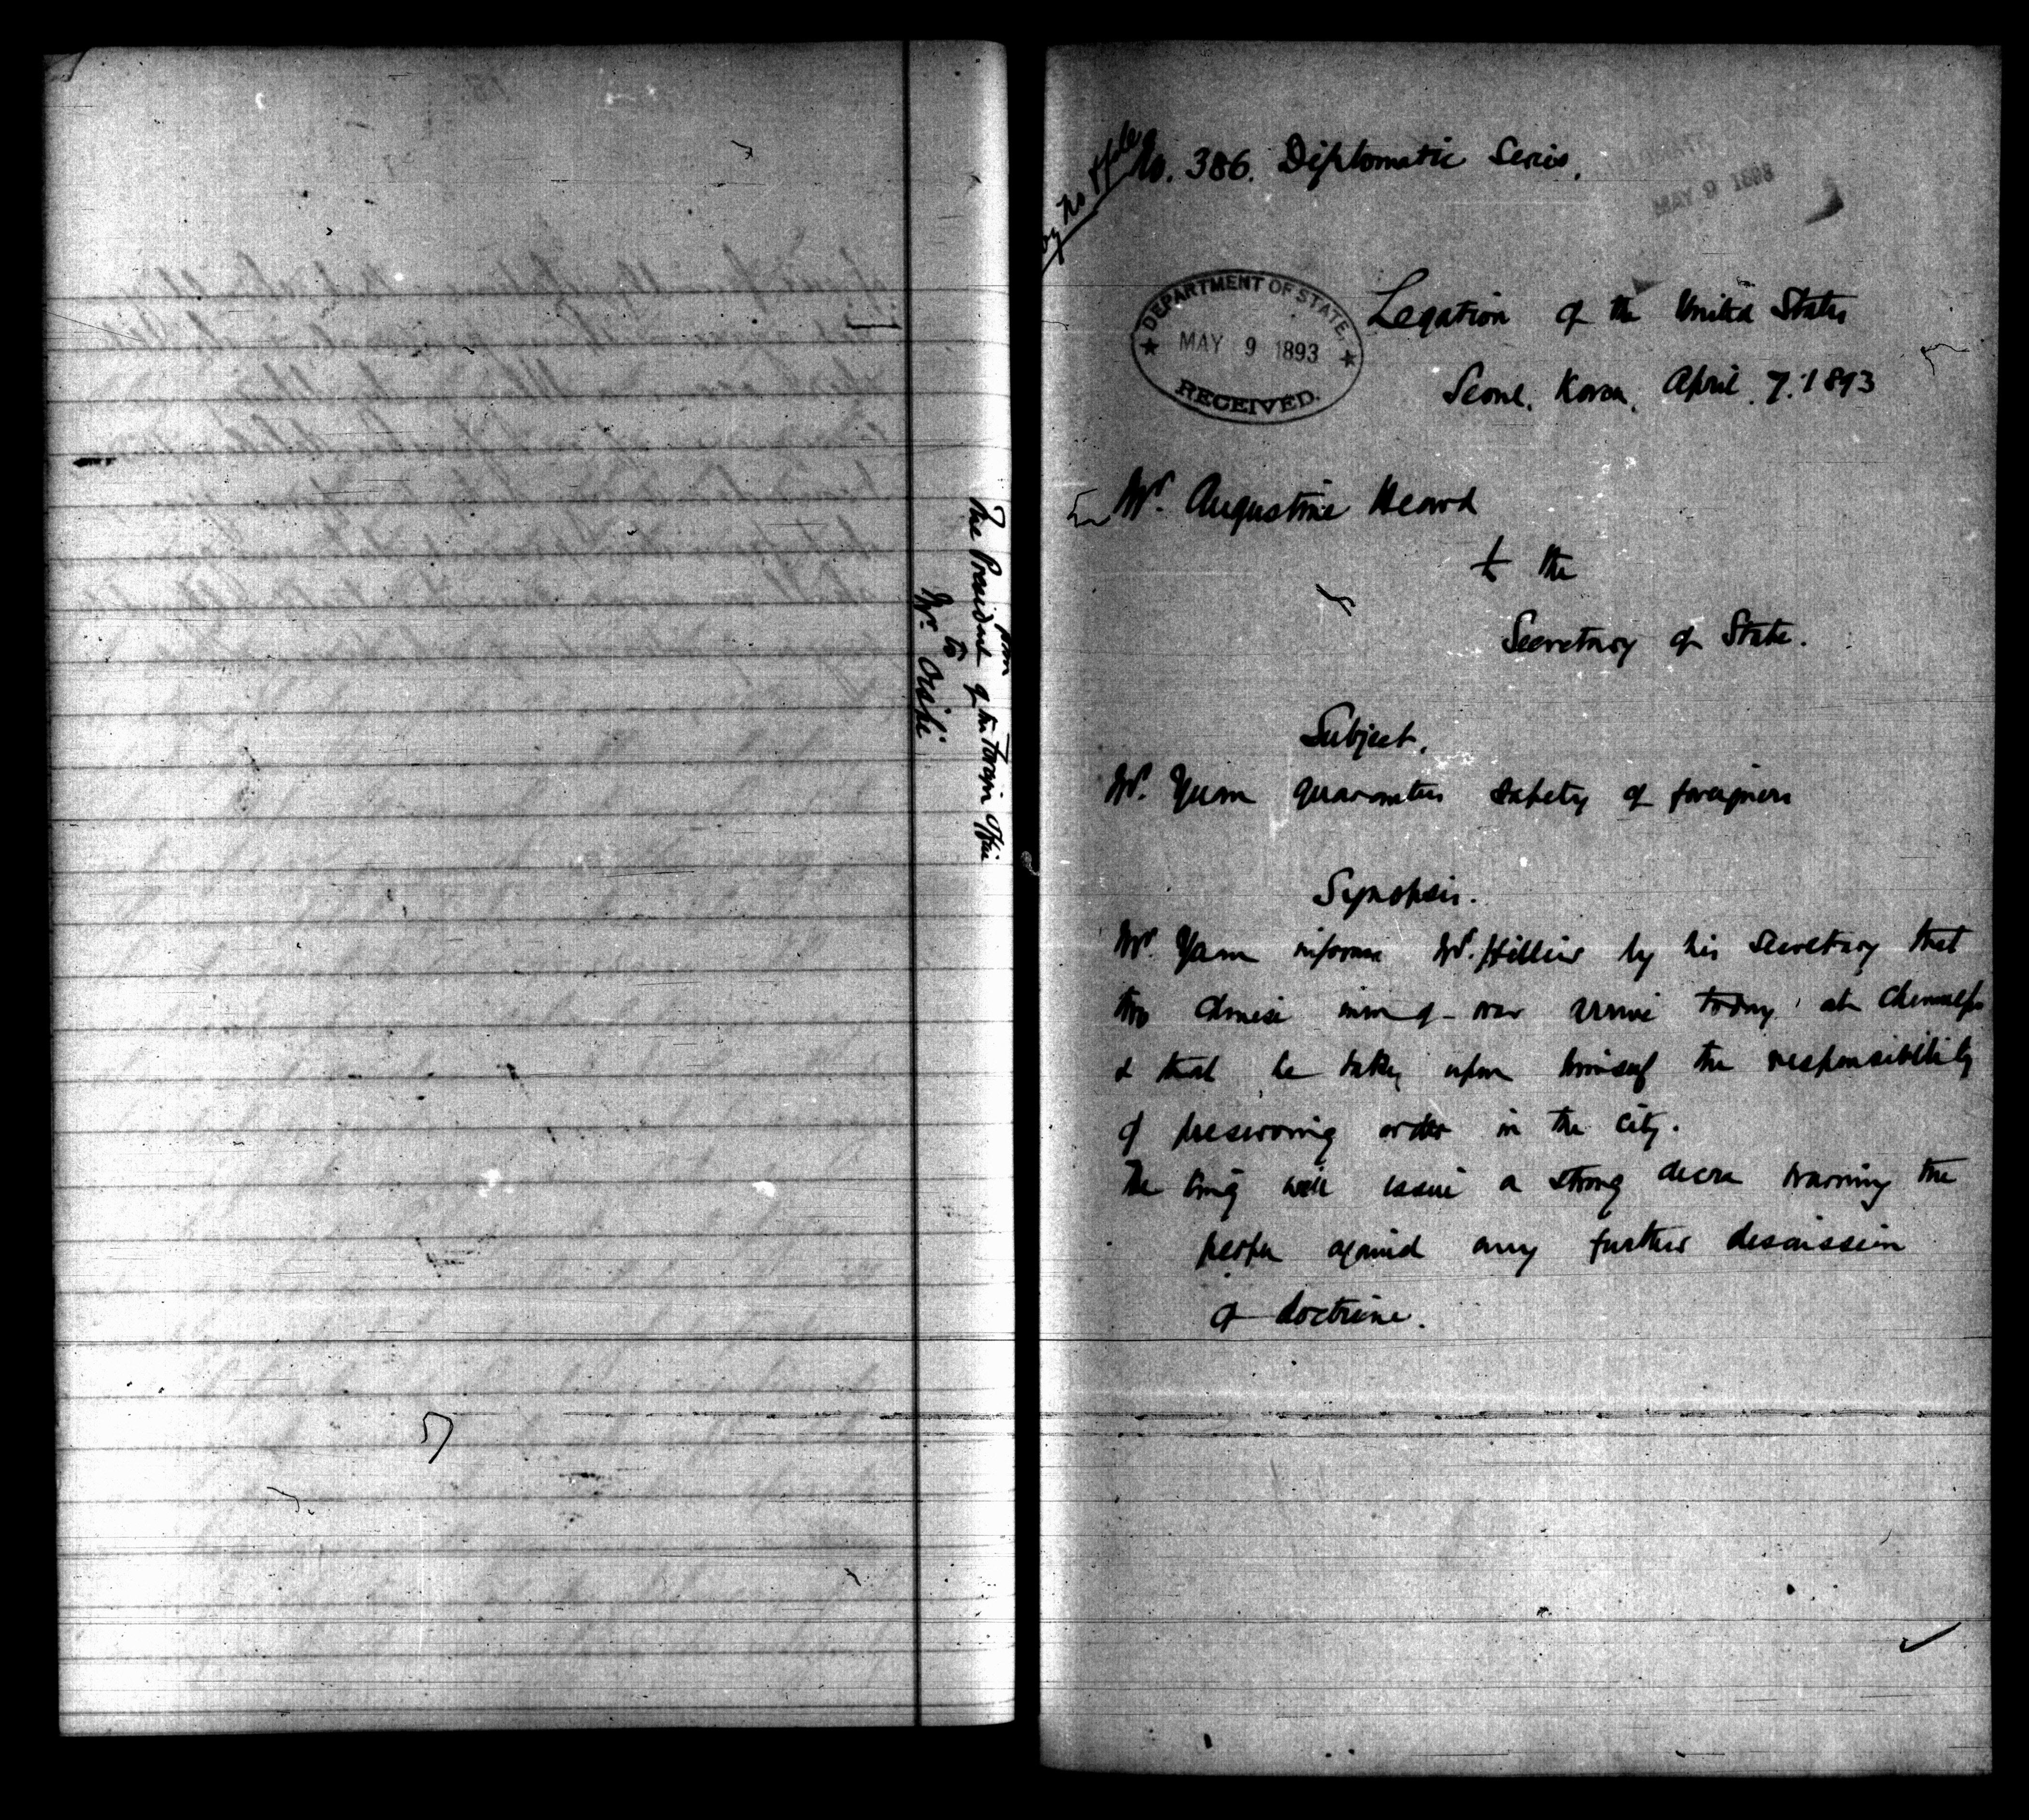 from
The President of the Foreign Office
to
Mr. Oiishi
No. 386. Diplomatic Series.
MAY 9 1893
DEPARTMENT OF STATE,
MAY 9 1893
RECEIVED.
Legation of the United States
Seoul, Korea, April 7. 1893
Mr. Augustine Heard
to the
Secretary of State.
Subject.
Mr. Yuan guarantees safety of foreigners
Synopsis.
Mr. Yuan informs Mr. Hillier by his Secretary that
two Chinese men-of-war arrive today at Chemulpo
& that he takes upon himself the responsibility
of preserving order in the city.
The King will issue a strong decree warning the
people against any further discussion
of doctrine.